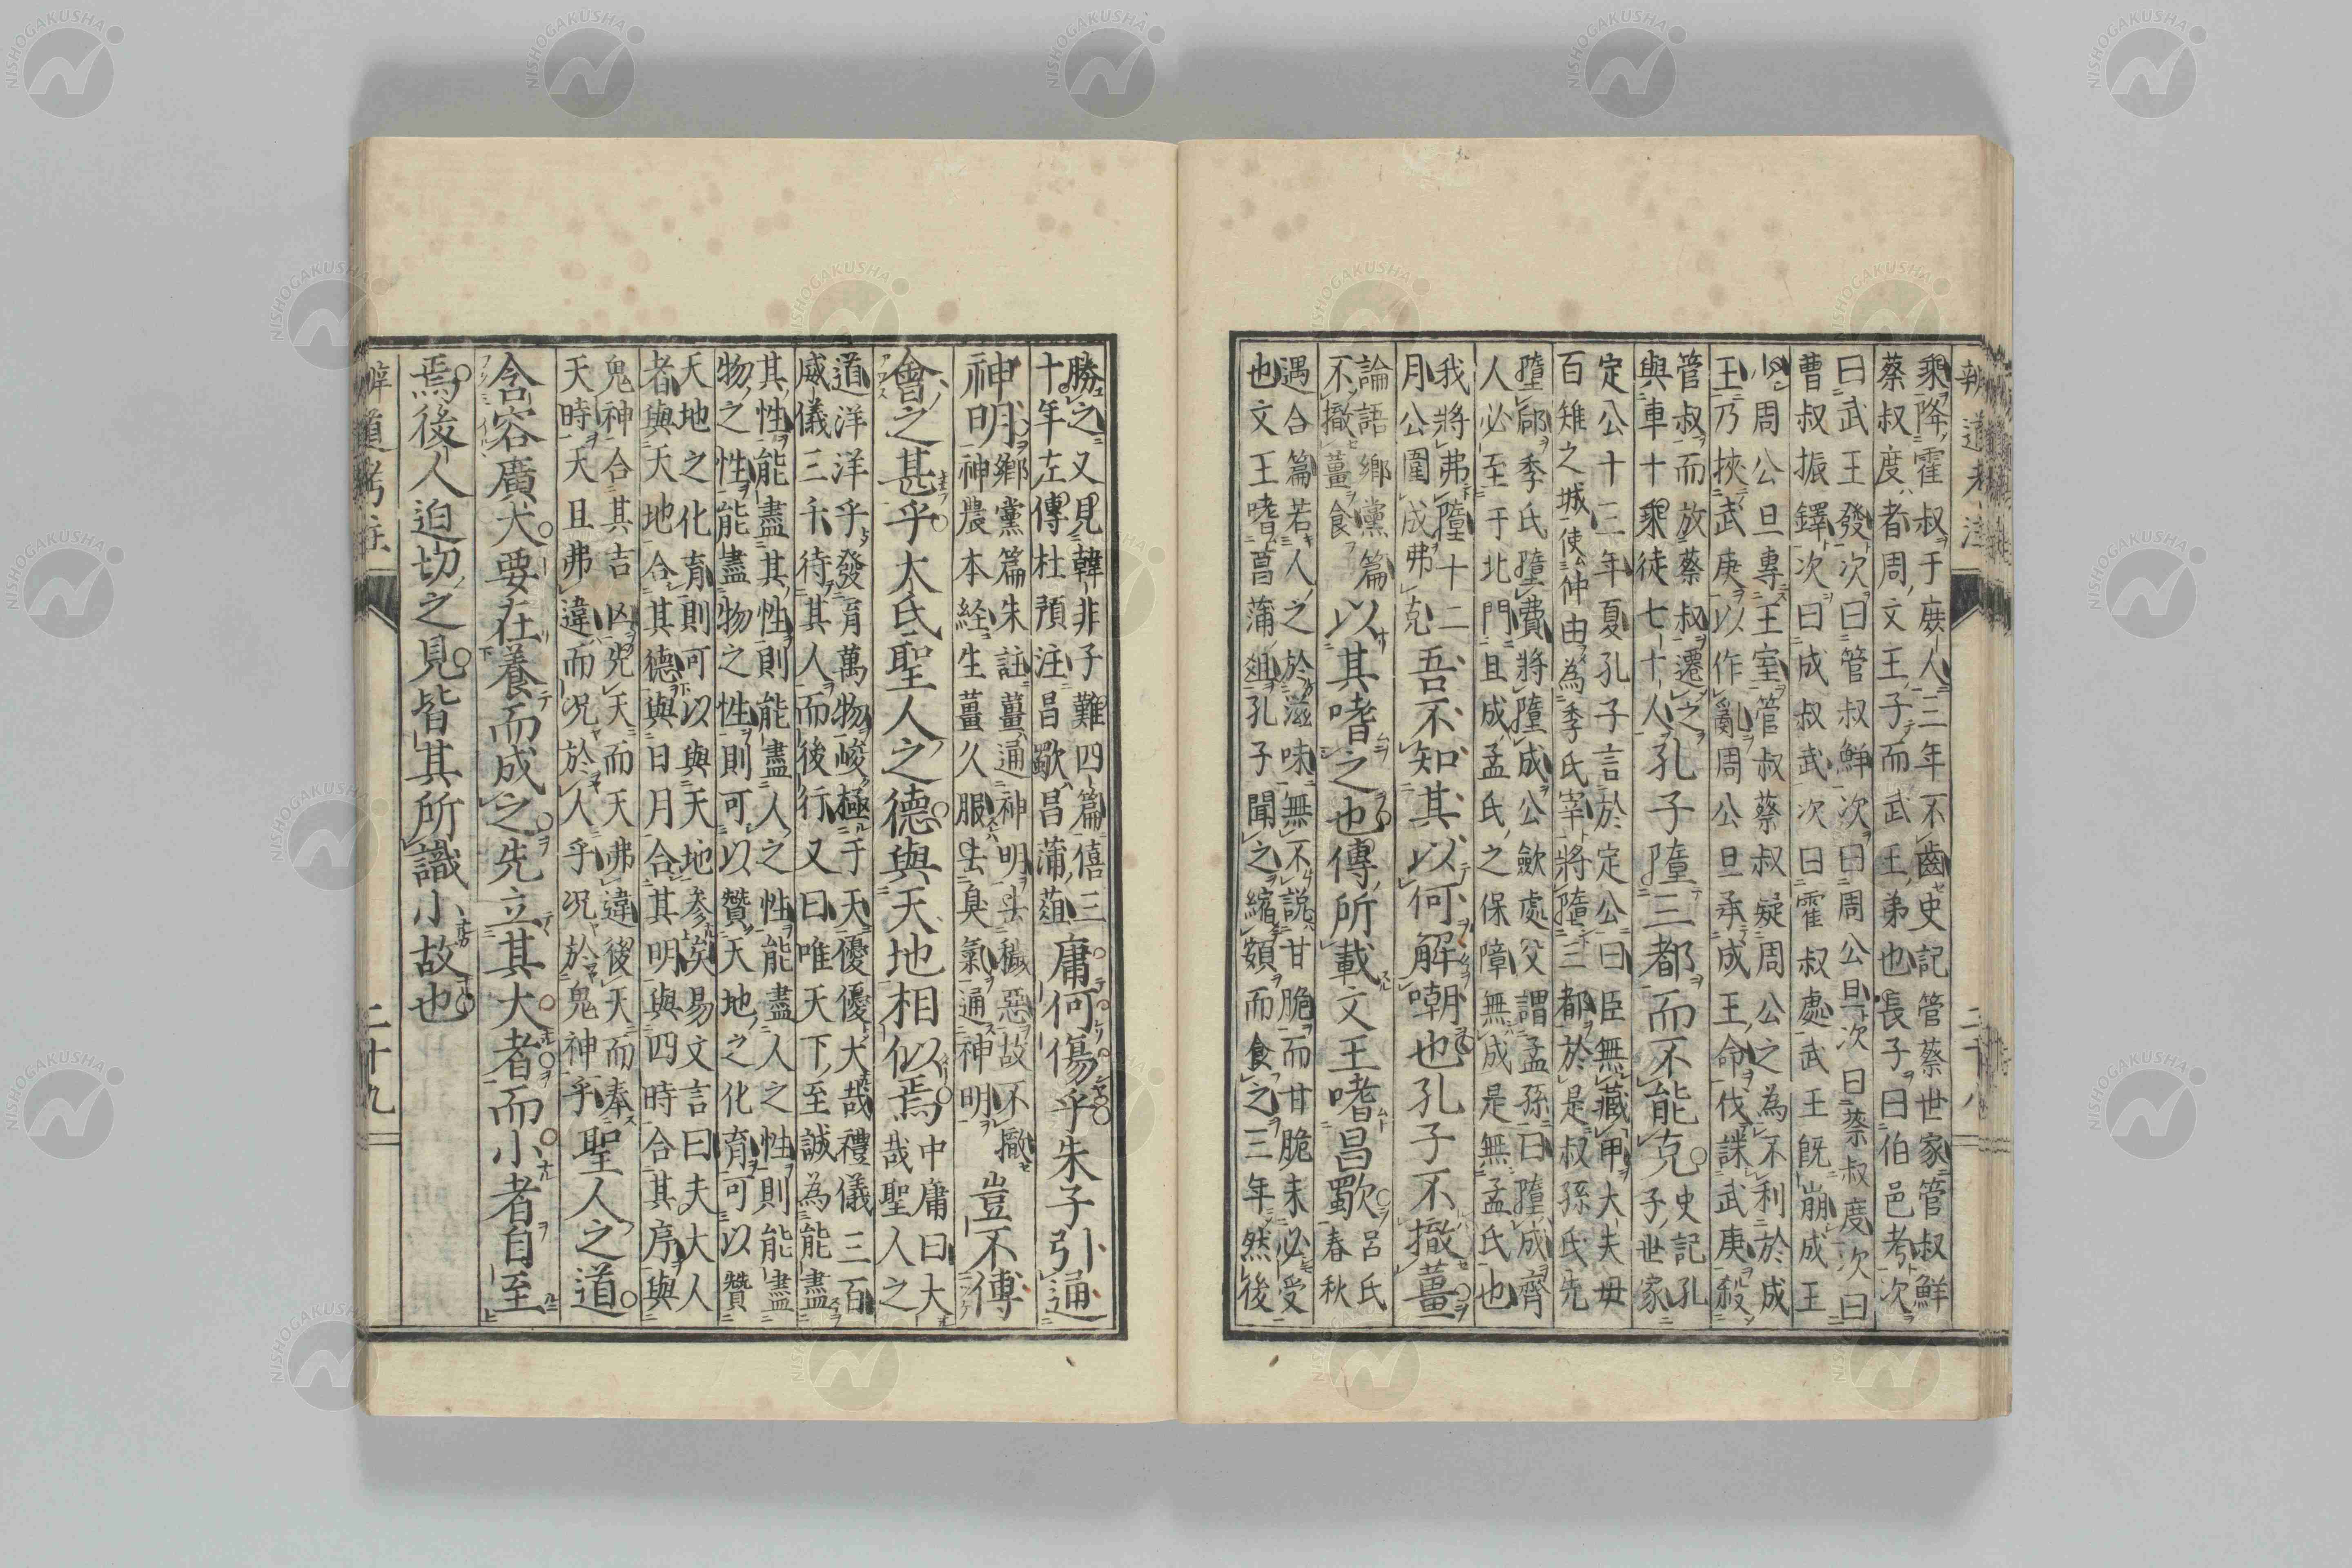 辨道考注
二十八
乘降霍叔于庶人三年不齒史記管蔡世家管叔鮮
蔡叔度者周文王子而武王弟也長子曰伯邑考次
曰武王發次曰管叔鮮次曰周公旦次曰蔡叔度次曰
曹叔振鐸次曰成叔武次曰霍叔處武王既崩成王
少周公旦專王室管叔蔡叔疑周公之為不利於成
王乃挾武庚以作亂周公旦承成王命伐誅武庚殺
管叔而放蔡叔遷之
與車十乘徒七十人
孔子墮三都而不能克
史記孔
子世家
定公十二年夏孔子言於定公曰臣無藏甲大夫毋
百雉之城使仲由為季氏宰將墮三都於是叔孫氏先
墮郈季氏墮費將墮成公歛處父謂孟孫曰墮成齊
人必至于北門且成孟氏之保障無成是無孟氏也
我將弗墮十二
月公圍成弗克
吾不知其以何解嘲也孔子不撤薑
論語鄉黨篇
不撤薑食
以其嗜之也傳所載文王嗜昌歜
呂氏
春秋
遇合篇若人之於滋味無不說甘脆而甘脆未必受
也文王嗜菖蒲葅孔子聞之縮頞而食之三年然後
勝之又見韓非子難四篇僖三
十年左傳杜預注昌歜昌蒲葅
庸何傷乎朱子引通
神明
鄉黨篇朱註薑通神明去穢惡故不撤
神農本経生薑久服去臭氣通神明
豈不傅
會之甚乎大氏聖人之德與天地相似焉
中庸曰大
哉聖人之
道洋洋乎發育萬物峻極于天優優大哉禮儀三百
威儀三千待其人而後行又曰唯天下至誠為能盡
其性能盡其性則能盡人之性能盡人之性則能盡
物之性能盡物之性則可以贊天地之化育可以贊
天地之化育則可以與天地參矣易文言曰夫大人
者與天地合其德與日月合其明與四時合其序與
鬼神合其吉凶先天而天弗違後天而奉
天時天且弗違而况於人乎况於鬼神乎
聖人之道
含容廣大要在養而成之先立其大者而小者自至
焉後人迫切之見皆其所識小故也
辨道考注
二十九